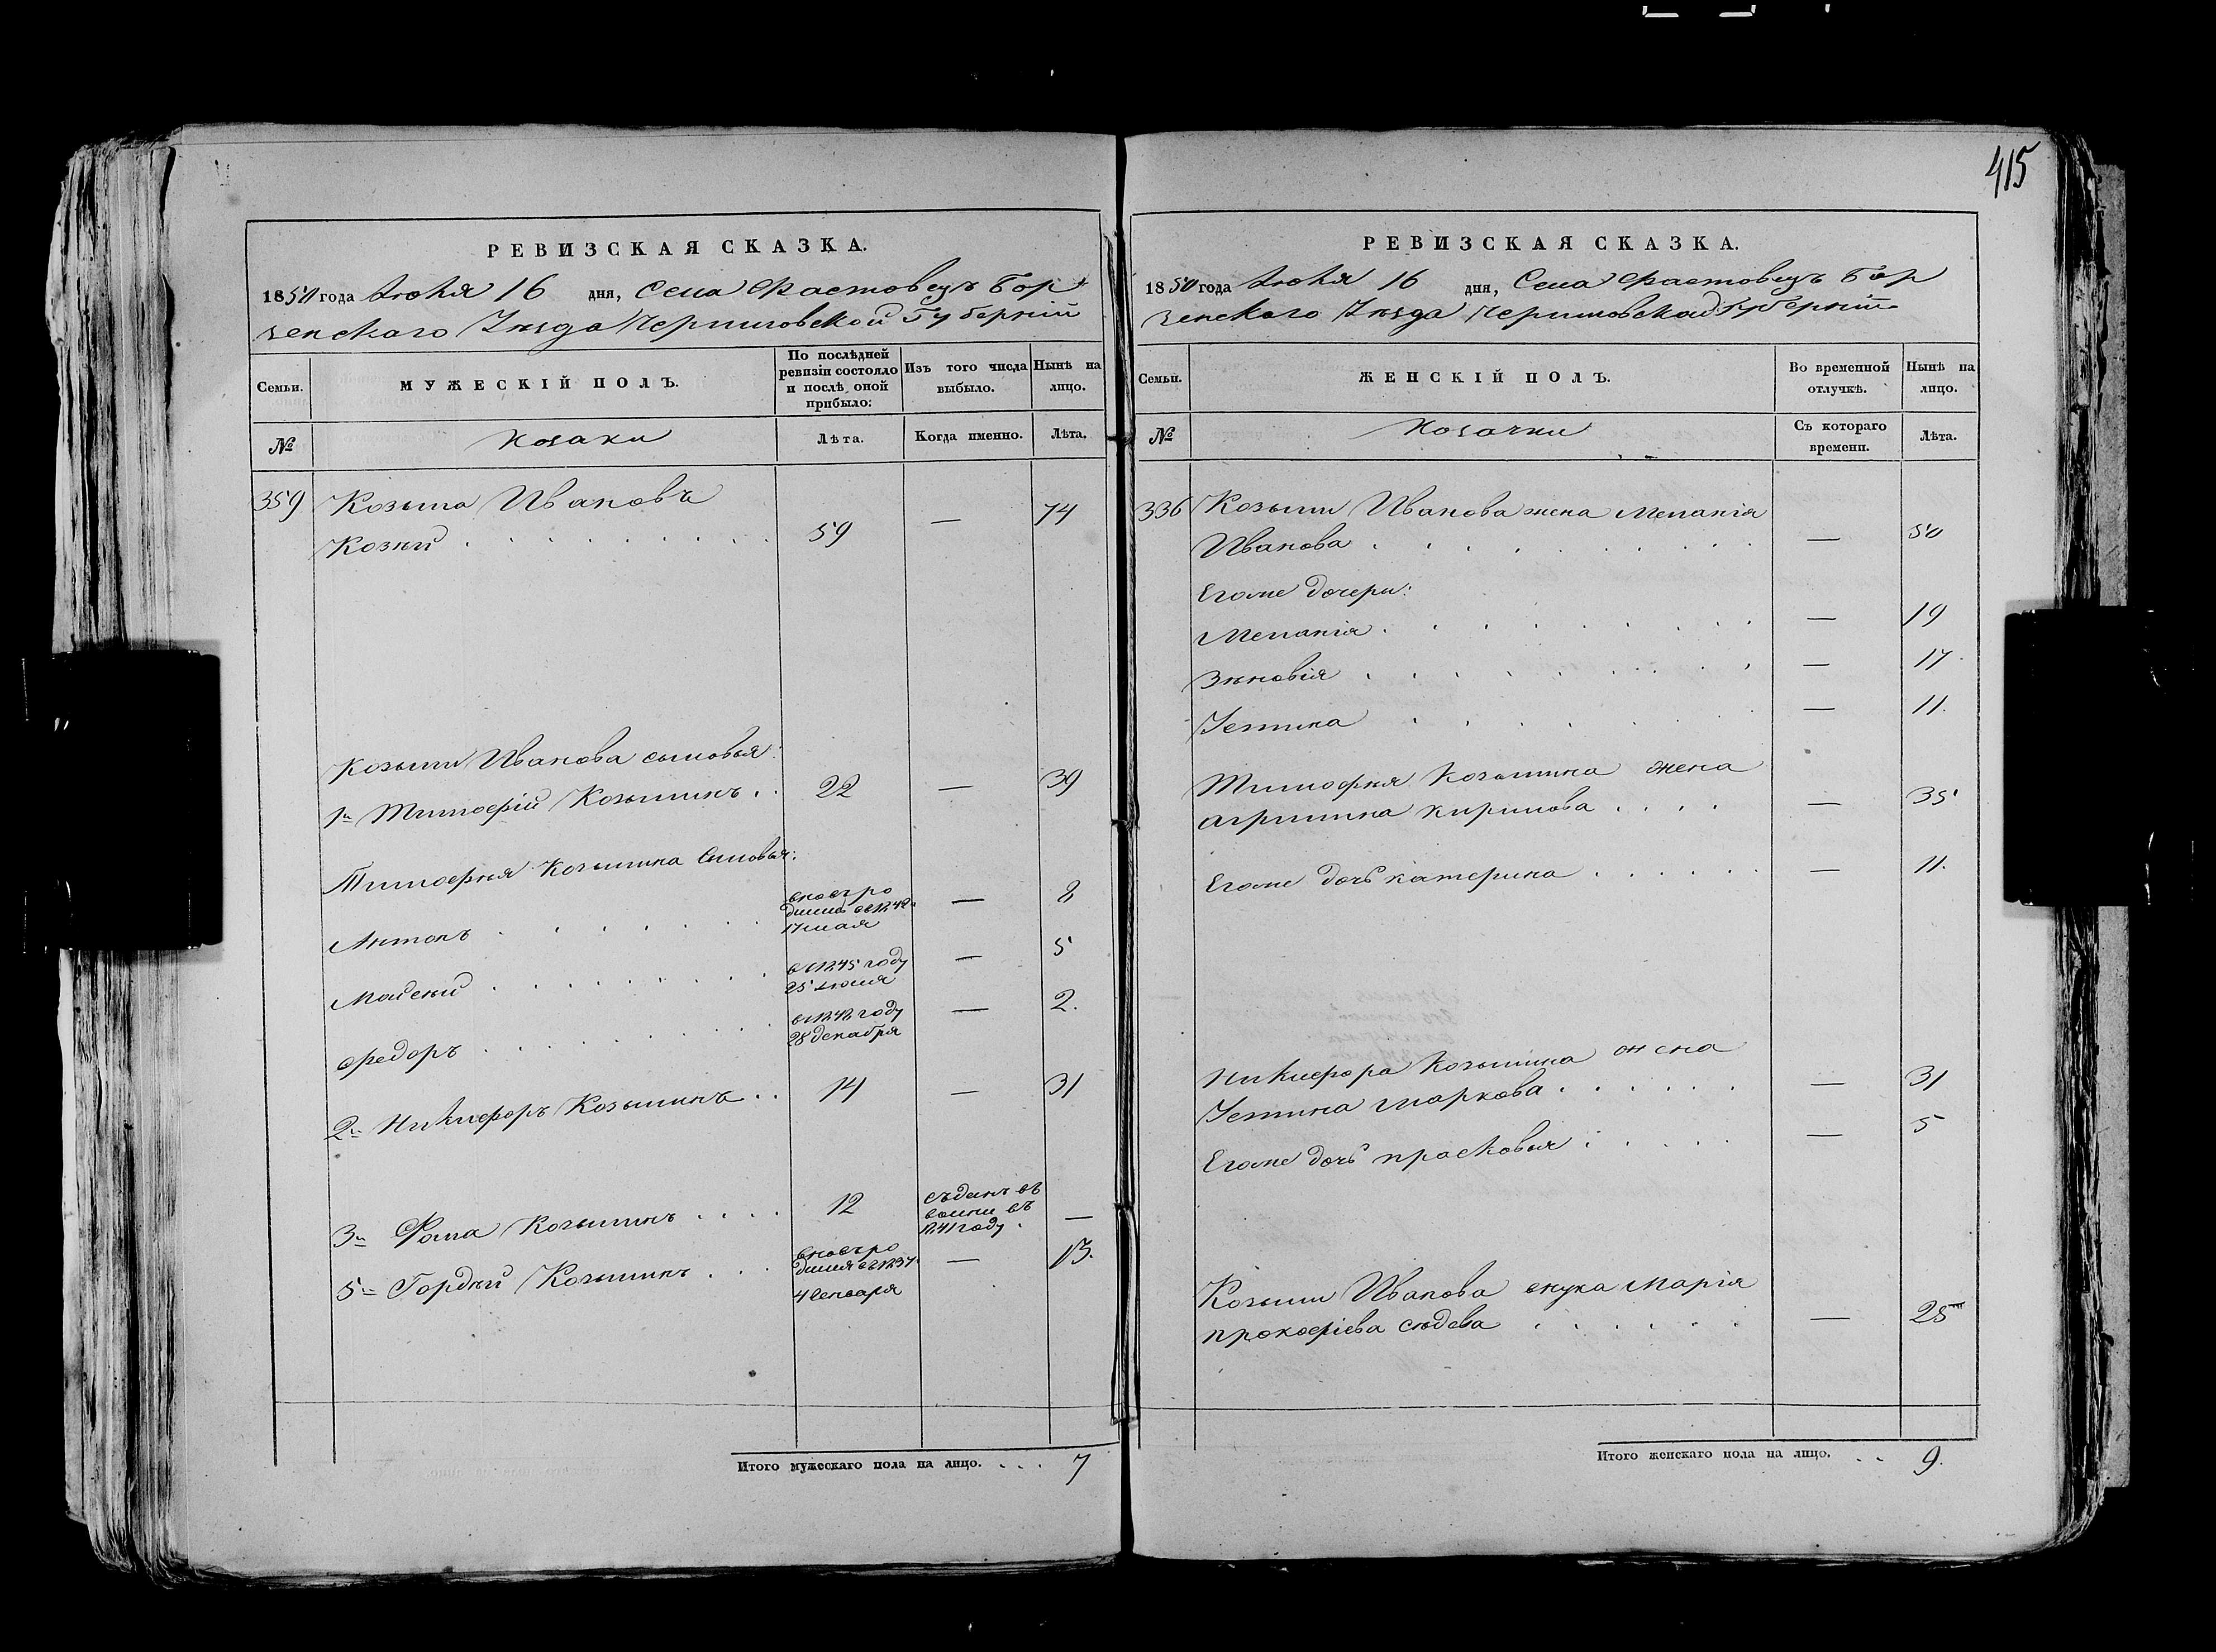 415
РЕВИЗСКАЯ СКАЗКА.
1850 года Июня 16 дня, Села Фастовецъ Бор
зенского Уѣзда Черниговской Губерніи
Семьи.
МУЖЕСКІЙ ПОЛЪ.
По послѣдней
ревизіи состояло
и послѣ оной
прибыло:
Изъ того числа
выбыло.
Нынѣ на
лицо.
№
Козаки
Лѣта.
Когда именно.
Лѣта.
359 Козьма Ивановъ
Козѣй 59 — 74
Козьмы Иванова сыновья:
1й Тимофій Козьминъ 22 — 39
Тимофѣя Козьмина Сыновья:
Антонъ — 8
17 мая
Мойсѣй въ 1845 году — 5
25 июля
Федоръ году — 2.
28 декабря
2й Никифоръ Козьминъ 14 — 31
3й Фома Козьминъ 12 —
въ
1841 году
5й Гордѣй Козьминъ — 13.
4 Генваря
Итого мужескаго пола на лицо. 7
РЕВИЗСКАЯ СКАЗКА.
1850 года Июня 16 дня, Села Фастовецъ Бор
зенского Уѣзда Черниговской Губерніи
Семьи.
ЖЕНСКІЙ ПОЛЪ.
Во временной
отлучкѣ.
Нынѣ на
лицо.
№
Козачки
Съ котораго
времени.
Лѣта.
336 Козьмы Иванова жена Меланія
Иванова — 50
Егоже дочери:
Меланія — 19
Зѣновія — 17
Устина — 11.
Тимофѣя Козьмина жена
Агрипина Кирилова — 35
Егоже дочь Катерина — 11.
Никифора Козьмина жена
Устина Маркова — 31
Егоже дочь Прасковья — 5
Козьмы Иванова внука Марія
Прокофіева — 25
Итого женскаго пола на лицо. 9.